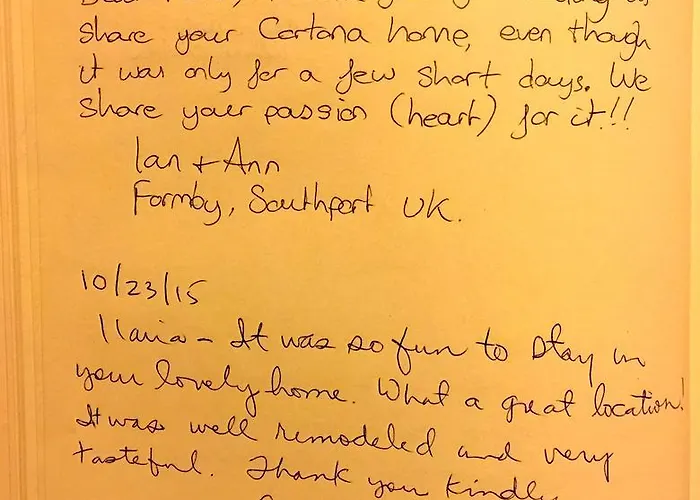 share your Cortona home, even though
it was only for a few short days. We
share your passion (heart) for it!!
Ian + Ann
Formby, Southport UK.
10/23/15
Ilaria - It was so fun to stay in
your lovely home. What a great location!
It was well remodeled and very
tasteful. Thank you kindly